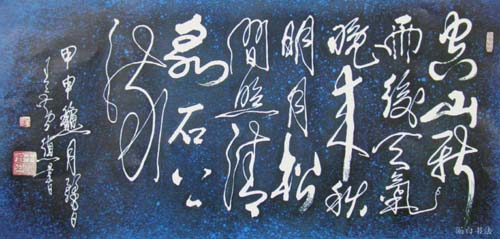 空山新
雨後天氣
晚来秋
明月松
間照清
泉石上
流
甲申 月